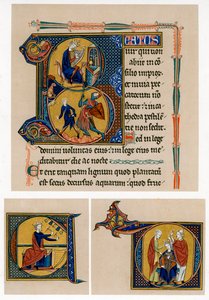 EATUS
uir qui non
abiit in co
silio impior
et in uia pec
catorum no
stetit: et in ca
thedra pestile
tie non sedit.
Sed in lege
domini uoluntas eius: et in lege eius me
ditabitur die ac nocte
Et erit tanquam lignum quod plantatum
est secus decursus aquarum: quod fruc